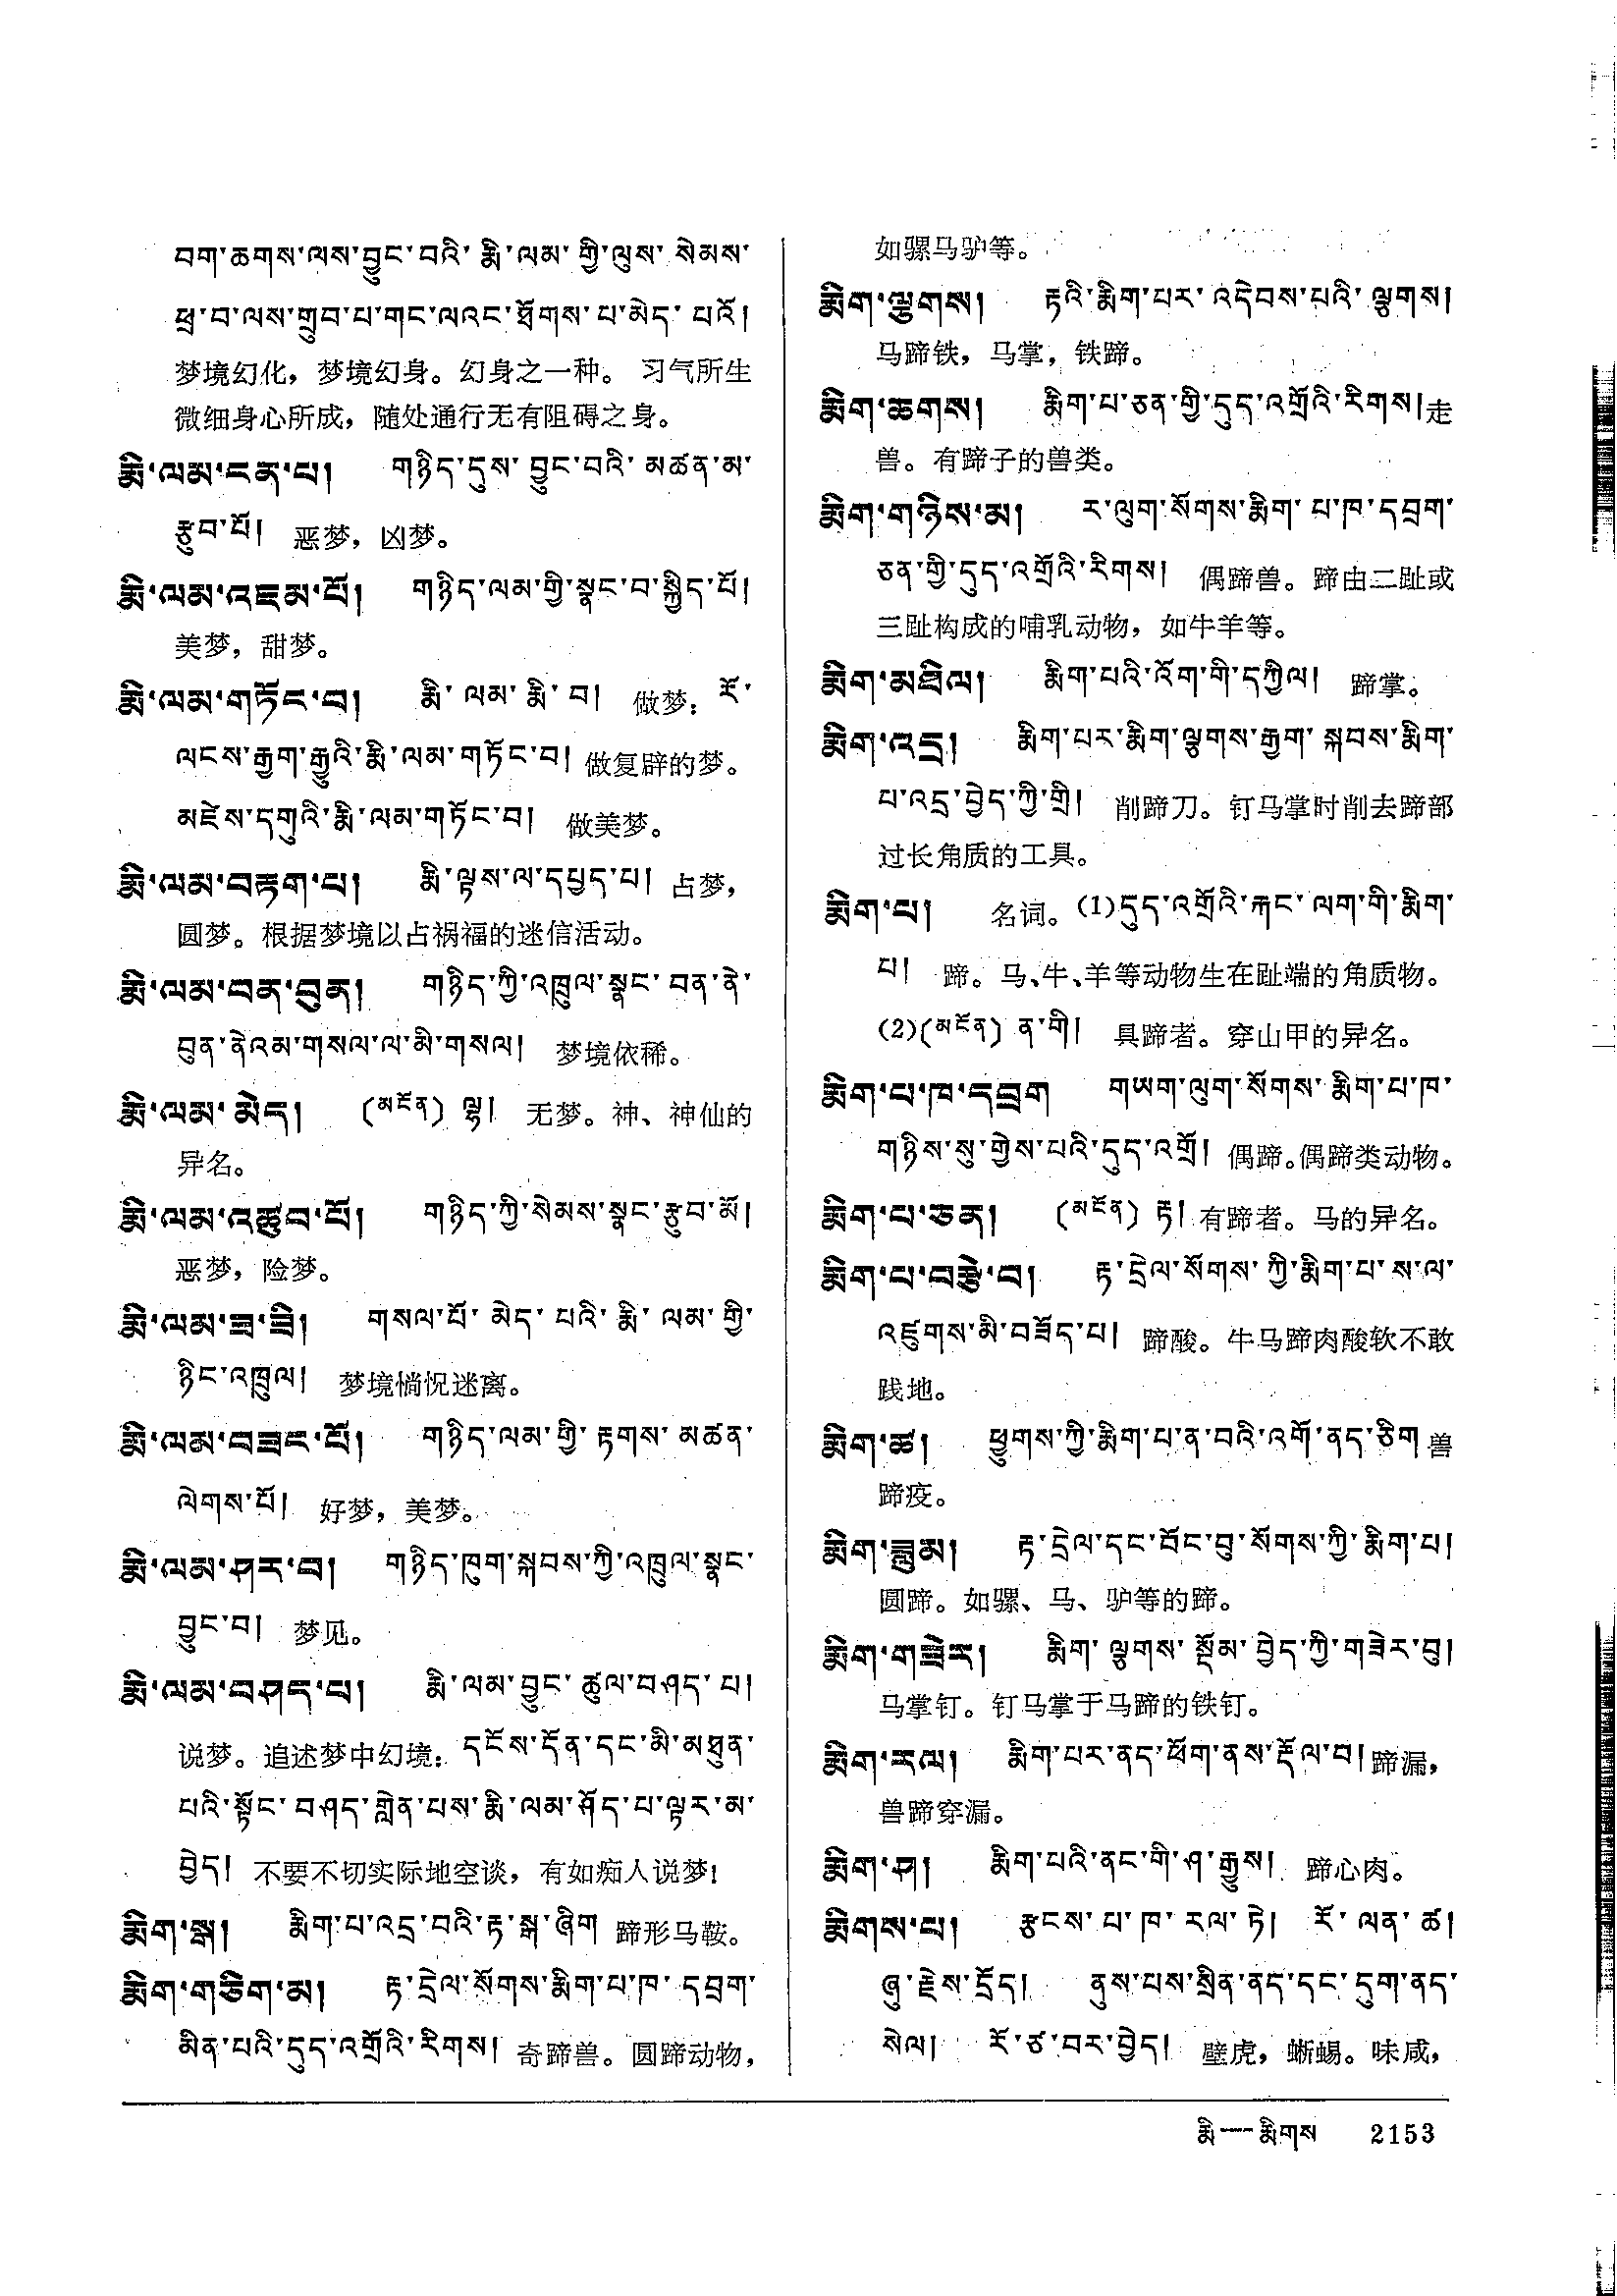 བག་ཆགས་ལས་བྱུང་བའི་རྨི་ལམ་གྱི་ལུས་སེམས་
ཕྲ་བ་ལས་གྲུབ་པ་གང་ལའང་ཐོགས་པ་མེད་པའོ།
梦境幻化，梦境幻身。幻身之一种。 习气所生
微细身心所成，随处通行无有阻碍之身。
རྨི་ལམ་ངན་པ།  གཉིད་དུས་བྱུང་བའི་མཚན་མ་
རྩུབ་པོ།  恶梦，凶梦。
རྨི་ལམ་འཇམ་པོ།  གཉིད་ལམ་གྱི་སྣང་བ་སྐྱིད་པོ།
美梦，甜梦。
རྨི་ལམ་གཏོང་བ།  རྨི་ལམ་རྨི་བ།  做梦：རོ་
ལངས་རྒྱག་རྒྱུའི་རྨི་ལམ་གཏོང་བ། 做复辟的梦。
མཛེས་དགུའི་རྨི་ལམ་གཏོང་བ།  做美梦。
རྨི་ལམ་བརྟག་པ།  རྨི་ལྟས་ལ་དཔྱད་པ། 占梦，
圆梦。根据梦境以占祸福的迷信活动。
རྨི་ལམ་བན་བུན།  གཉིད་ཀྱི་འཁྲུལ་སྣང་བན་ནེ་
བུན་ནེའམ་གསལ་ལ་མི་གསལ།  梦境依稀。
རྨི་ལམ་མེད།  (མངོན) ལྷ།  无梦。神、神仙的
异名。
རྨི་ལམ་འཚུབ་པོ།  གཉིད་ཀྱི་སེམས་སྣང་རྩུབ་མོ།
恶梦，险梦。
རྨི་ལམ་ཟ་ཟི།  གསལ་པོ་མེད་པའི་རྨི་ལམ་གྱི་
ཉིང་འཁྲུལ།  梦境惝怳迷离。
རྨི་ལམ་བཟང་པོ།  གཉིད་ལམ་གྱི་རྟགས་མཚན་
ལེགས་པོ།  好梦，美梦。
རྨི་ལམ་ཤར་བ།  གཉིད་ཁུག་སྐབས་ཀྱི་འཁྲུལ་སྣང་
བྱུང་བ།  梦见。
རྨི་ལམ་བཤད་པ།  རྨི་ལམ་བྱུང་ཚུལ་བཤད་པ།
说梦。追述梦中幻境：དངོས་དོན་དང་མི་མཐུན་
པའི་སྟོང་བཤད་གླེན་པས་རྨི་ལམ་ཤོད་པ་ལྟར་མ་
བྱེད། 不要不切实际地空谈，有如痴人说梦！
རྨིག་སྒ།  རྨིག་པ་འདྲ་བའི་རྟ་སྒ་ཞིག 蹄形马鞍。
རྨིག་གཅིག་མ།  རྟ་དྲེལ་སོགས་རྨིག་པ་ཁ་དབྲག་
མིན་པའི་དུད་འགྲོའི་རིགས། 奇蹄兽。圆蹄动物，
如骡马驴等。
རྨིག་ལྕགས།  རྟའི་རྨིག་པར་འདེབས་པའི་ལྕགས།
马蹄铁，马掌，铁蹄。
རྨིག་ཆགས།  རྨིག་པ་ཅན་གྱི་དུད་འགྲོའི་རིགས། 走
兽。有蹄子的兽类。
རྨིག་གཉིས་མ།  ར་ལུག་སོགས་རྨིག་པ་ཁ་དབྲག་
ཅན་གྱི་དུད་འགྲོའི་རིགས།  偶蹄兽。蹄由二趾或
三趾构成的哺乳动物，如牛羊等。
རྨིག་མཐིལ།  རྨིག་པའི་འོག་གི་དཀྱིལ།  蹄掌。
རྨིག་འདྲ།  རྨིག་པར་རྨིག་ལྕགས་རྒྱག་སྐབས་རྨིག་
པ་འདྲ་བྱེད་ཀྱི་གྲི།  削蹄刀。钉马掌时削去蹄部
过长角质的工具。
རྨིག་པ།  名词。(1)དུད་འགྲོའི་རྐང་ལག་གི་རྨིག་
པ།  蹄。马、牛、羊等动物生在趾端的角质物。
(2)(མངོན) ན་གི།  具蹄者。穿山甲的异名。
རྨིག་པ་ཁ་དབྲག  གཡག་ལུག་སོགས་རྨིག་པ་ཁ་
གཉིས་སུ་གྱེས་པའི་དུད་འགྲོ། 偶蹄。偶蹄类动物。
རྨིག་པ་ཅན།  (མངོན) རྟ། 有蹄者。马的异名。
རྨིག་པ་བརྩེ་བ།  རྟ་དྲེལ་སོགས་ཀྱི་རྨིག་པ་ས་ལ་
འཛུགས་མི་བཟོད་པ། 蹄酸。牛马蹄肉酸软不敢
践地。
རྨིག་ཚ།  ཕྱུགས་ཀྱི་རྨིག་པ་ན་བའི་འགོ་ནད་ཅིག 兽
蹄疫。
རྨིག་ཟླུམ།  རྟ་དྲེལ་དང་བོང་བུ་སོགས་ཀྱི་རྨིག་པ།
圆蹄。如骡、马、驴等的蹄。
རྨིག་གཟེར།  རྨིག་ལྕགས་སྡོམ་བྱེད་ཀྱི་གཟེར་བུ།
马掌钉。钉马掌于马蹄的铁钉。
རྨིག་རལ།  རྨིག་པར་ནད་ཕོག་ནས་རྡོལ་བ། 蹄漏，
兽蹄穿漏。
རྨིག་ཤ།  རྨིག་པའི་ནང་གི་ཤ་རྒྱུས།  蹄心肉。
རྨིགས་པ།  རྩངས་པ་ཁ་རལ་ཏེ།  རོ་ལན་ཚ།
ཞུ་རྗེས་དྲོད།  ནུས་པས་སྲིན་ནད་དང་དུག་ནད་
སེལ།  རོ་ཙ་བར་བྱེད།  壁虎，蜥蜴。味咸，
རྨི—རྨིགས  2153